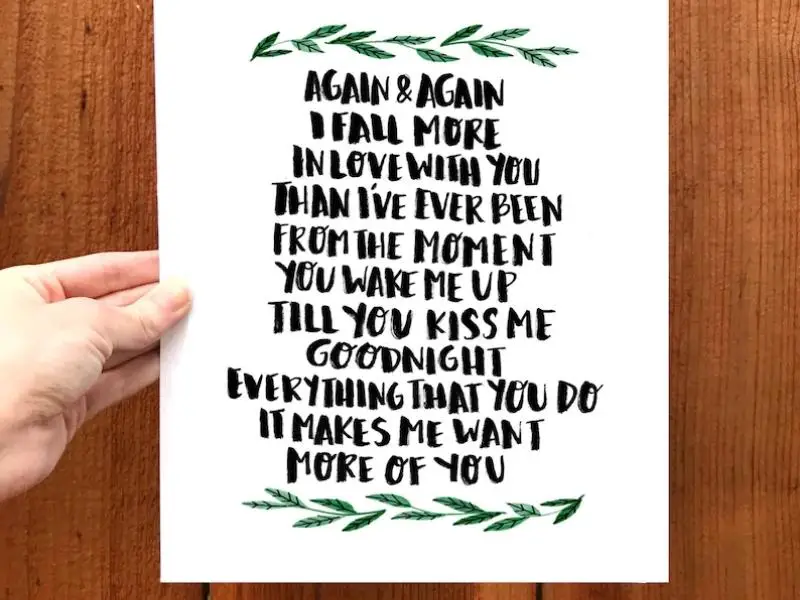 AGAIN & AGAIN
I FALL MORE
IN LOVE WITH YOU
THAN I'VE EVER BEEN
FROM THE MOMENT
YOU WAKE ME UP
TILL YOU KISS ME
GOODNIGHT
EVERYTHING THAT YOU DO
IT MAKES ME WANT
MORE OF YOU